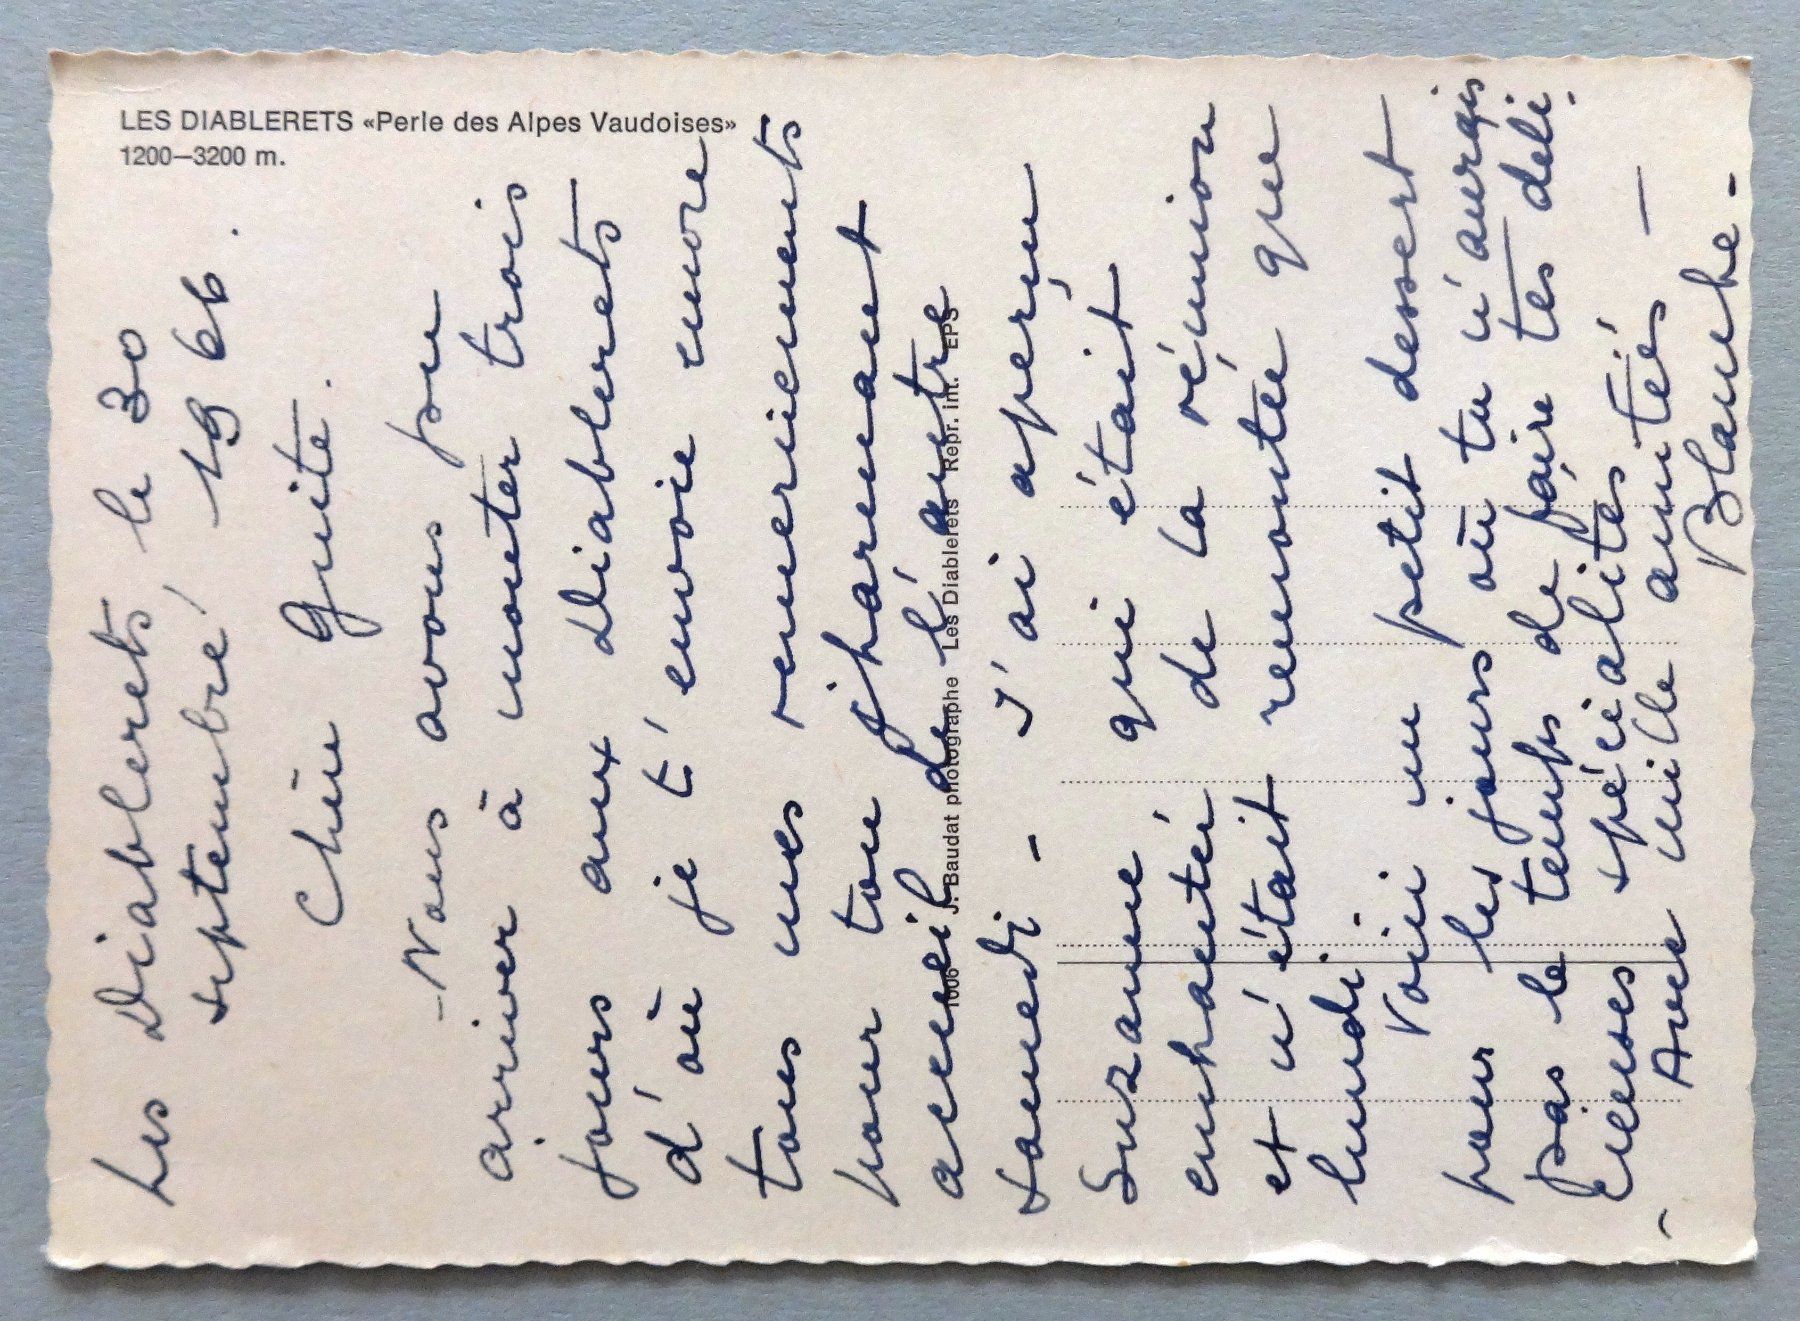 LES DIABLERETS «Perle des Alpes Vaudoises»
1200—3200 m.
Les Diablerets le 30
septembre 1966.
Chère Guite.
- Nous avons pu
arriver à monter trois
jours aux Diablerets
d'où je t'envoie encore
tous mes remerciements
pour ton charmant
accueil de l'autre
samedi - J'ai aperçu
Suzanne qui était
enchantée de la réunion
et n'était remontée que
lundi.
Voici un petit dessert
pour les jours où tu n'aurais
pas le temps de faire tes déli-
cieuses spécialités -
- Avec mille amitiés -
Blanche -
1006 J. Baudat photographe Les Diablerets Repr. int. EPS